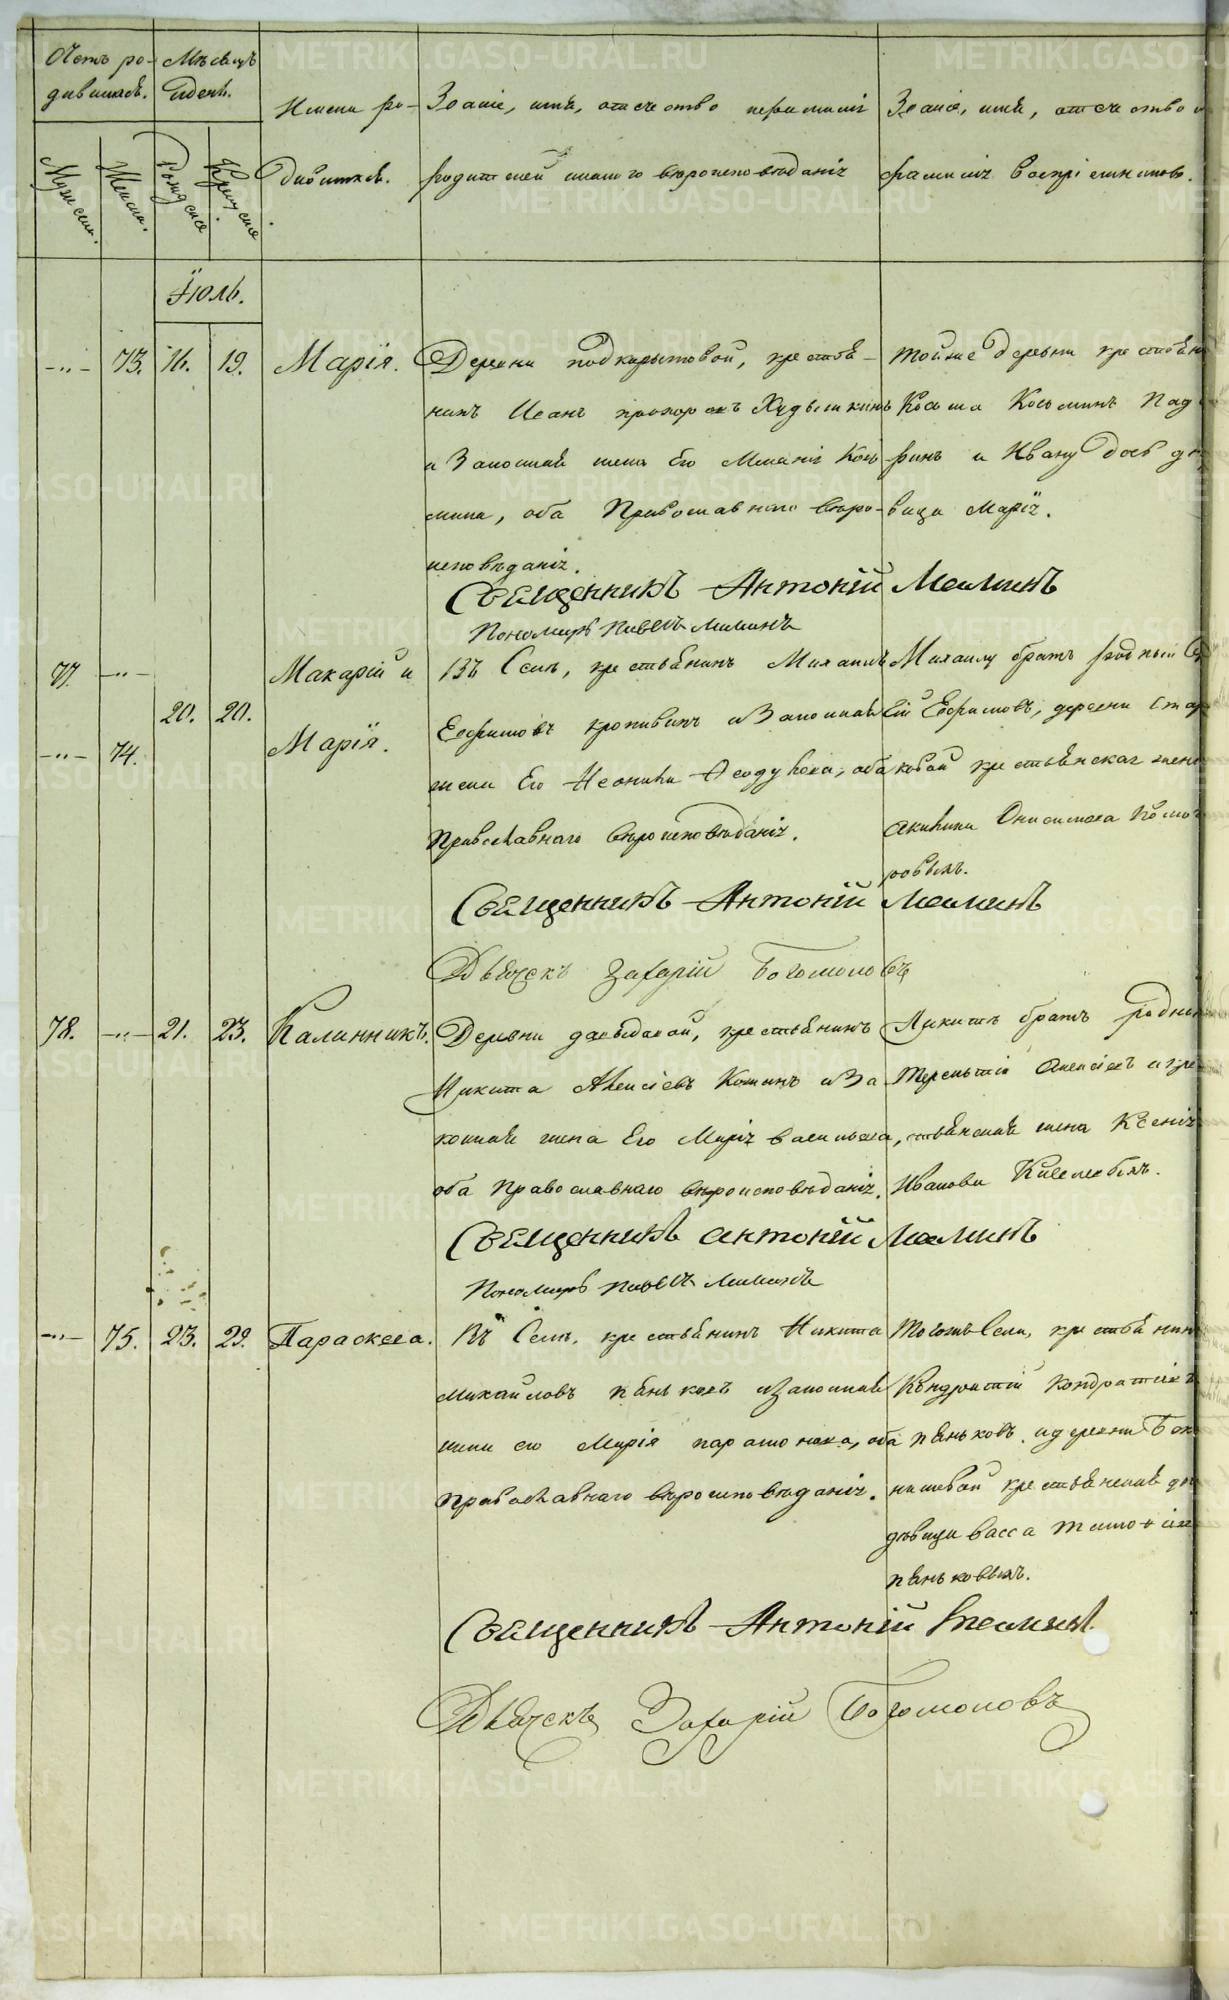 Счетъ ро-
дившихся.
Мѣсяцъ
и день.
Имена ро-
дившихся.
Званіе, имя, отечество и фамилія
родителей и какого вѣроисповѣданія
Званіе, имя, отечество и
фамилія воспріемниковъ.
Мужеска.
Женска.
Рожденіе
Крещеніе
Іюль.
73. 16. 19. Марія.
Деревни Подкорытовой, крестья-
нинъ Иванъ Прохоровъ Худышкинъ
и Законная жена Его Меланія Козь-
мина, оба Православнаго вѣро-
исповѣданія.
Тойже деревни крестьянинъ
Косьма Косьминъ
дѣ-
вица Марія.
Священникъ Антоній Маминъ
Пономарь Павелъ Маминъ
77.
74.
20. 20.
Макарій и
Марія.
Въ Селѣ, крестьянинъ Михаилъ
Евфимовъ Кропивинъ и Законная
жена Его Неонила Ѳеодулова, оба
Православнаго вѣроисповѣданія.
Михаилу братъ родный
Евфимовъ, деревни
крестьянская жена
Акилина Онисимова
ровыхъ.
Священникъ Антоній Маминъ
Дьячекъ Захарій Богомоловъ
78. 21. 23. Калинникъ.
Деревни Давыдовой, крестьянинъ
Никита Алексѣевъ Коминъ и За-
конная жена Его Марія Васильева,
оба Православнаго вѣроисповѣданія.
Никитѣ братъ родный
Терентій Алексѣевъ и кре-
стьянская жена Ксенія
Иванова
Священникъ Антоній Маминъ
Пономарь Павелъ Маминъ
75. 23. 29. Параскева.
Въ Селѣ, крестьянинъ Никита
Михайловъ Пѣньковъ и Законная
жена его Марія Парамонова, оба
Православнаго вѣроисповѣданія.
Тогожъ Села, крестьянинъ
Кондратій Кондратьевъ
Пѣньковъ и деревни
крестьянская
дѣвица Васса
Пѣньковыхъ.
Священникъ Антоній Маминъ
Дьячекъ Захарій Богомоловъ
METRIKI.GASO-URAL.RU